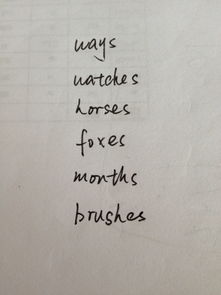 ways
watches
horses
foxes
months
brushes